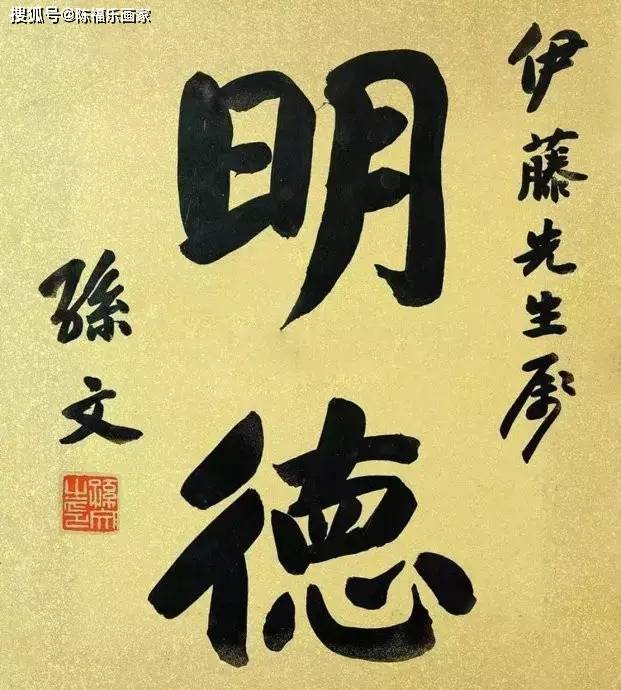 搜狐号@陈福乐画家
伊藤先生属
明德
孫文
孫文之印